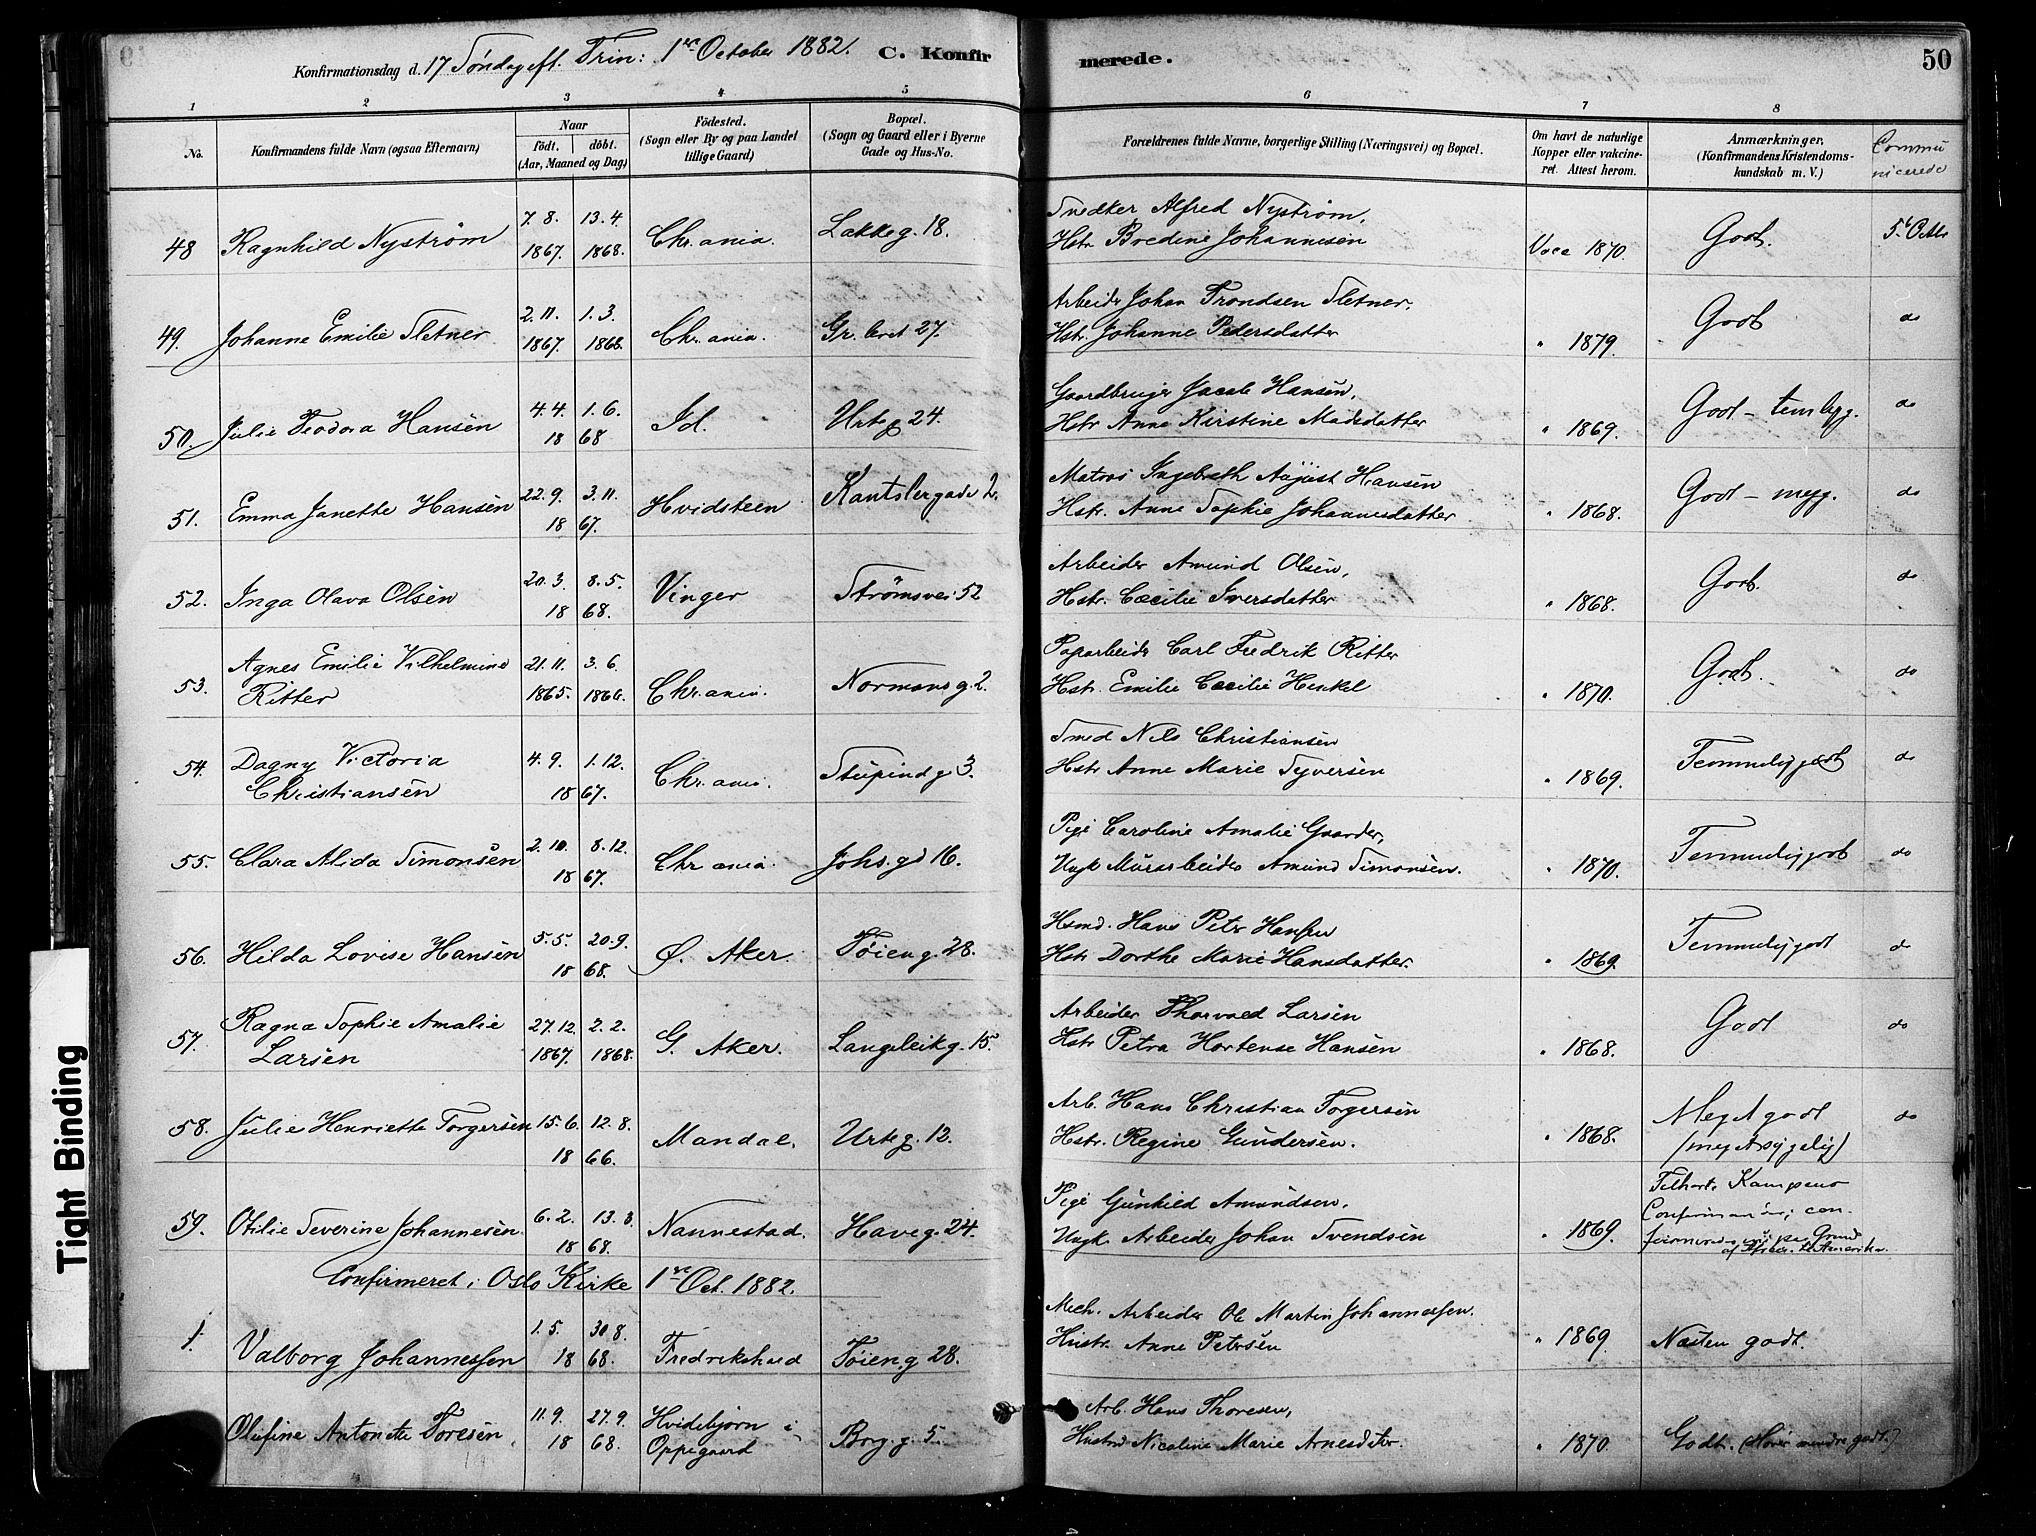 Konfirmationsdag d. 17 Søndag eft. Trin: 1ste October 1882. C. Konfirmerede. 50
1 2 3 4 5 6 7 8
No.
Konfirmandens fulde Navn (ogsaa Efternavn)
Naar
födt. döbt.
(Aar, Maaned og Dag)
Födested.
(Sogn eller By og paa Landet
tillige Gaard)
Bopæl.
(Sogn og Gaard eller i Byerne
Gade og Hus-No.
Forældrenes fulde Navne, borgerlige Stilling (Næringsvei) og Bopæl.
Om havt de naturlige
Kopper eller vakcine-
ret. Attest herom.
Anmærkninger,
(Konfirmandens Kristendoms-
kundskab m. V.)
Commu
nicerede
48 Ragnhild Nyström 7.8. 1867. 13.4. 1868. Chr.ania. Lakkeg. 18.
Snedker Alfred Nyström,
Hstr. Bredine Johannesen Vacc 1870. Godt. 5t Octbr
49. Johanne Emilie Sletner 2.11. 1867. 1.3. 1868. Chr.ania. Gr. leret 27.
Arbeider Johan Trondsen Sletner,
Hstr. Johanne Pedersdatter " 1879. Godt do
50. Julie Teodora Hansen 4.4. 1.6. 1868 Id. Urteg 24.
Gaardbruger Jacob Hansen,
Hstr Anne Kirstine Madsdatter " 1869. Godt - temlig. do
51. Emma Janette Hansen 22.9. 3.11. 1867. Hvidsteen Kantslergade 2.
Matros Ingebreth August Hansen
Hstr. Anne Sophie Johannesdatter " 1868. Godt - meg. do
52. Inga Olava Olsen 20.3. 8.5. 1868. Vinger Strømsvei 52
Arbeider Amund Olsen,
Hstr. Cæcilie Iversdatter " 1868. Godt. do
53. Agnes Emilie Vilhelmine
Ritter 21.11. 1865. 3.6. 1866. Chr.ania. Normansg. 2.
Paparbeider Carl Fredrik Ritter
Hstr. Emilie Cæcilie Henkel " 1870. Godt. do
54. Dagny Victoria
Christiansen 4.9. 1.12. 1867. Chr.ania. Stupindg 3.
Smed Nils Christiansen
Hstr Anne Marie Syversen " 1869. Temmelig godt do
55. Clara Alida Simonsen 2.10. 8.12. 1867. Chr ania. Johs. gd 16.
Pige Caroline Amalie Gaarder,
Ungk Murarbeider Amund Simonsen. " 1870. Temmelig godt do
56. Hilda Lovise Hansen 5.5. 20.9. 1868. Ø. Aker. Tøieng. 28.
Hsmd. Hans Peter Hansen
Hstr Dorthe Marie Hansdatter. " 1869. Temmelig godt do
57. Ragna Sophie Amalie
Larsen 27.12. 1867. 2.2. 1868. G. Aker. Langleikg. 15.
Arbeider Thorvald Larsen
Hstr Petra Hortense Hansen " 1868. Godt do
58. Julie Henriette Torgersen 15.6. 12.8. 1866. Mandal. Urteg. 12.
Arb. Hans Christian Torgersen
Hstr. Regine Gundersen. " 1868. Meget godt
(meget sygelig) do
59. Otilie Severine Johannesen 6.2. 13.3. 1868. Nannestad. Haveg. 24.
Pige Gunhild Amundsen,
Ungk. Arbeider Johan Svendsen " 1869. Tilhørte Kampens
Confirmander; con-
firmeredes paa Grund
af Afreise til Amerika.
Confirmeret i Oslo Kirke 1ste Oct. 1882.
1. Valborg Johannessen 1.5. 30.8. 1868. Fredrikshald Tøieng 28.
Mech. Arbeider Ole Martin Johannessen.
Hustr. Anne Petersen " 1869. Næsten godt.
Olufine Antonette Toresen. 11.9. 27.9. 1868. Hvidebjørn i
Oppegaard Borg. g. 5.
Arb. Hans Thoresen,
Hustr. Nicoline Marie Arnesdtr. " 1870. Godt. (Hører mindre godt.)
Tight Binding